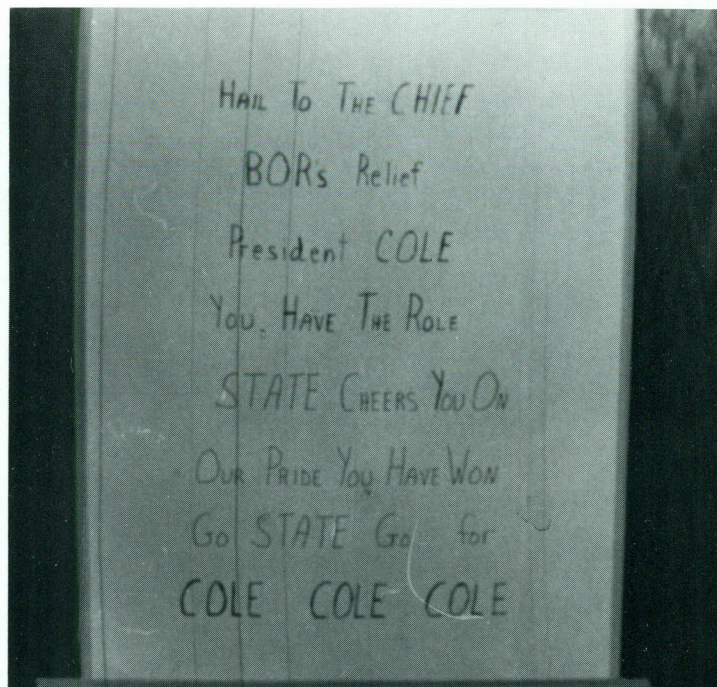 HAIL TO THE CHIEF
BOR's Relief
President COLE
You. HAVE THE ROLE
STATE CHEERS YOU ON
OUR PRIDE YOU HAVE WON
Go STATE Go for
COLE COLE COLE